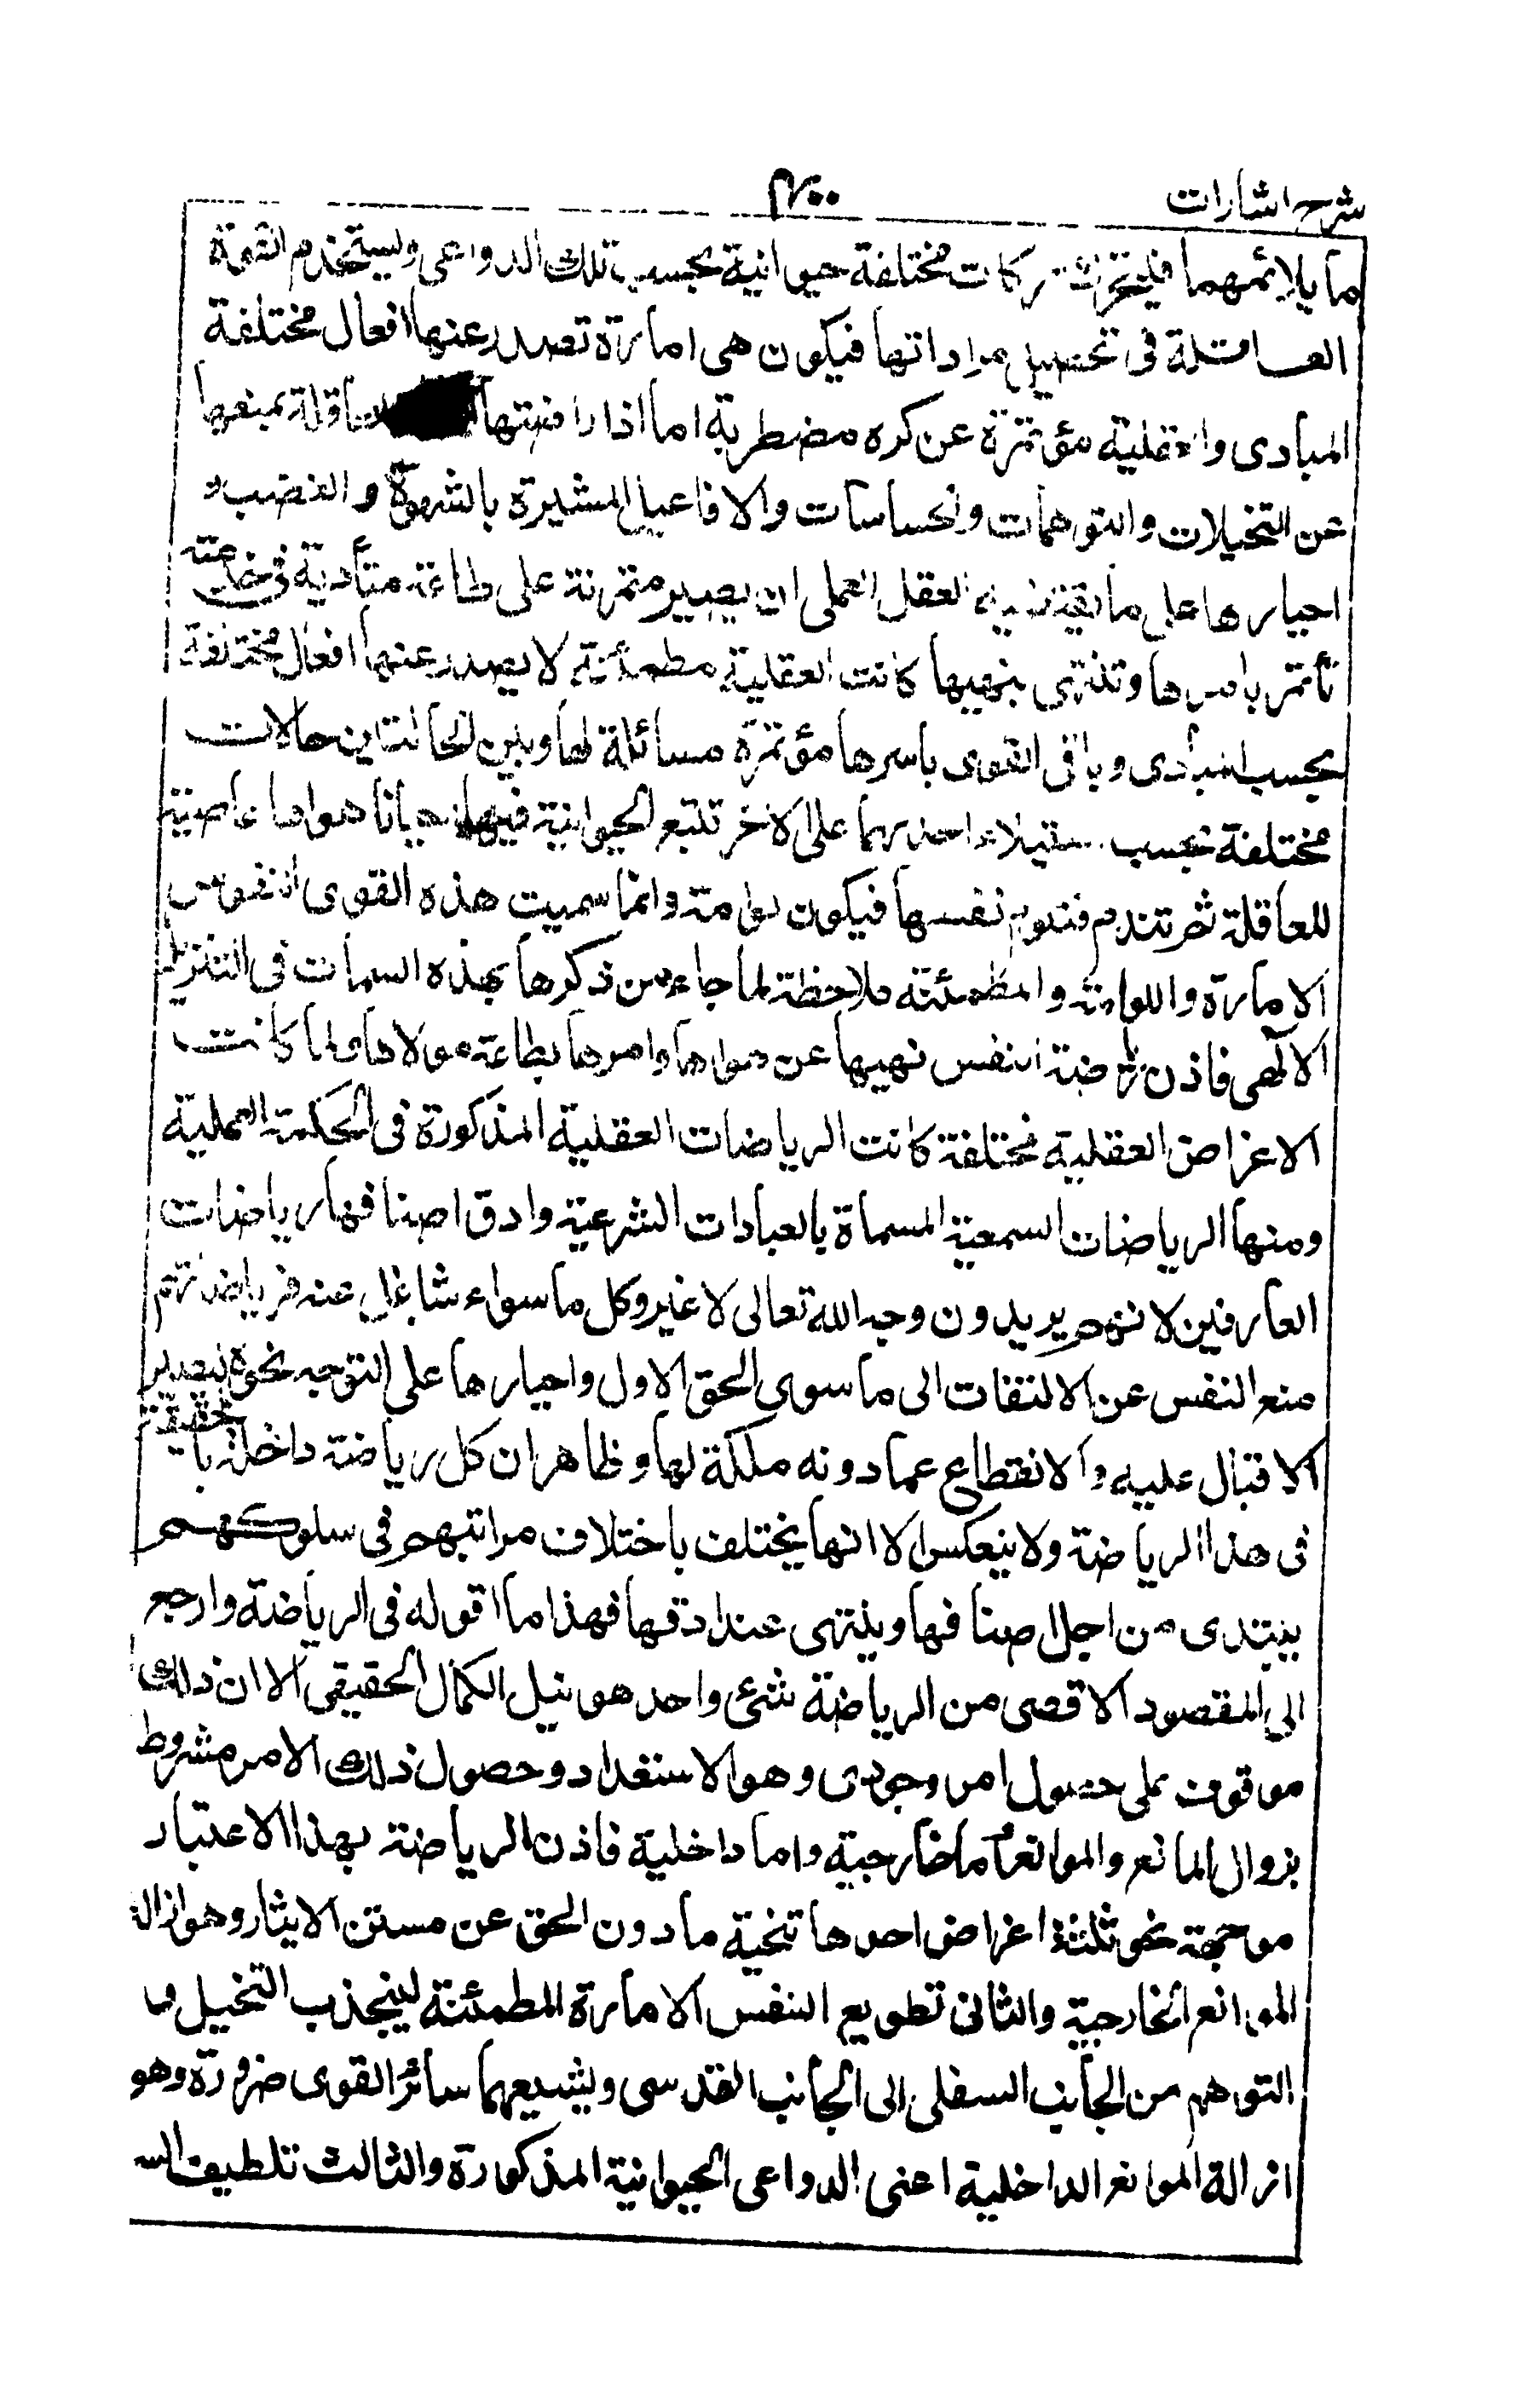 شرح اشارات
ما يلائمهما فيتحرك حركات مختلفة حيوانية بحسب تلك الدواعى وليستخدم القوة
العاقلة فى تحصيل مراداتها فيكون هى امارة تصدر عنها افعال مختلفة
المبادى والعقلية مؤتمرة عن كره مضطربة اما اذا راضتها العاقلة بمنعها
عن التخيلات والتوهمات والحساسات والافاعيل المشيرة بالشهوة والغضب و
اجبارها على ما يقتضيه العقل العملى ان يصير متمرنة على طاعته متأدبة فى خدمته
تأتمر بامرها وتنتهى بنهيها كانت العقلية مطمئنة لا يصدر عنها افعال مختلفة
بحسب المبادى وباقى القوى باسرها مؤتمرة مسائلة لها وبين الحالتين حالات
مختلفة بحسب ستيلاء احدهما على الاخر تتبع الحيوانية فيها احيانا هواها عاصية
للعاقلة ثم تندم فتلوم نفسها فيكون لوامة وانما سميت هذه القوى النفوس
الامارة واللوامة والمطمئنة ملاحظة لما جاء من ذكرها بهذه السمات فى التنزيل
الالهى فاذن رياضة النفس نهيها عن هواها وامرها بطاعة مولاها ولما كانت
الاغراض العقلية مختلفة كانت الرياضات العقلية المذكورة فى الحكمة العملية
ومنها الرياضات السمعية المسماة بالعبادات الشرعية وادق اصنافها رياضات
العارفين لانهم يريدون وجه الله تعالى لا غير وكل ما سواه شاغل عنه فرياضتهم
منع النفس عن الالتفات الى ما سوى الحق الاول واجبارها على التوجه نحوه ليصير
الاقبال عليه والانقطاع عما دونه ملكة لها وظاهر ان كل رياضة داخلة بالحقيقة
فى هذا الرياضة ولا ينعكس الا انها يختلف باختلاف مراتبهم فى سلوكهم
يبتدى من اجل اصنافها وينتهى عند ادقها فهذا ما اقوله فى الرياضة وارجع
الى المقصود الاقصى من الرياضة شئ واحد هو نيل الكمال الحقيقى الا ان ذلك
موقوف على حصول امر وجودى وهو الاستعداد وحصول ذلك الامر مشروط
بزوال المانع والموانع اما خارجية واما داخلية فاذن الرياضة بهذا الاعتبار
موجهة نحو ثلثة اغراض احدها تنحية ما دون الحق عن مستن الايثار وهو ازالة
الموانع الخارجية والثانى تطويع النفس الامارة للمطمئنة لينجذب التخيل و
التوهم من الجانب السفلى الى الجانب القدسى ويشيعهما سائر القوى ضرورة وهو
ازالة الموانع الداخلية اعنى الدواعى الحيوانية المذكورة والثالث تلطيف السر